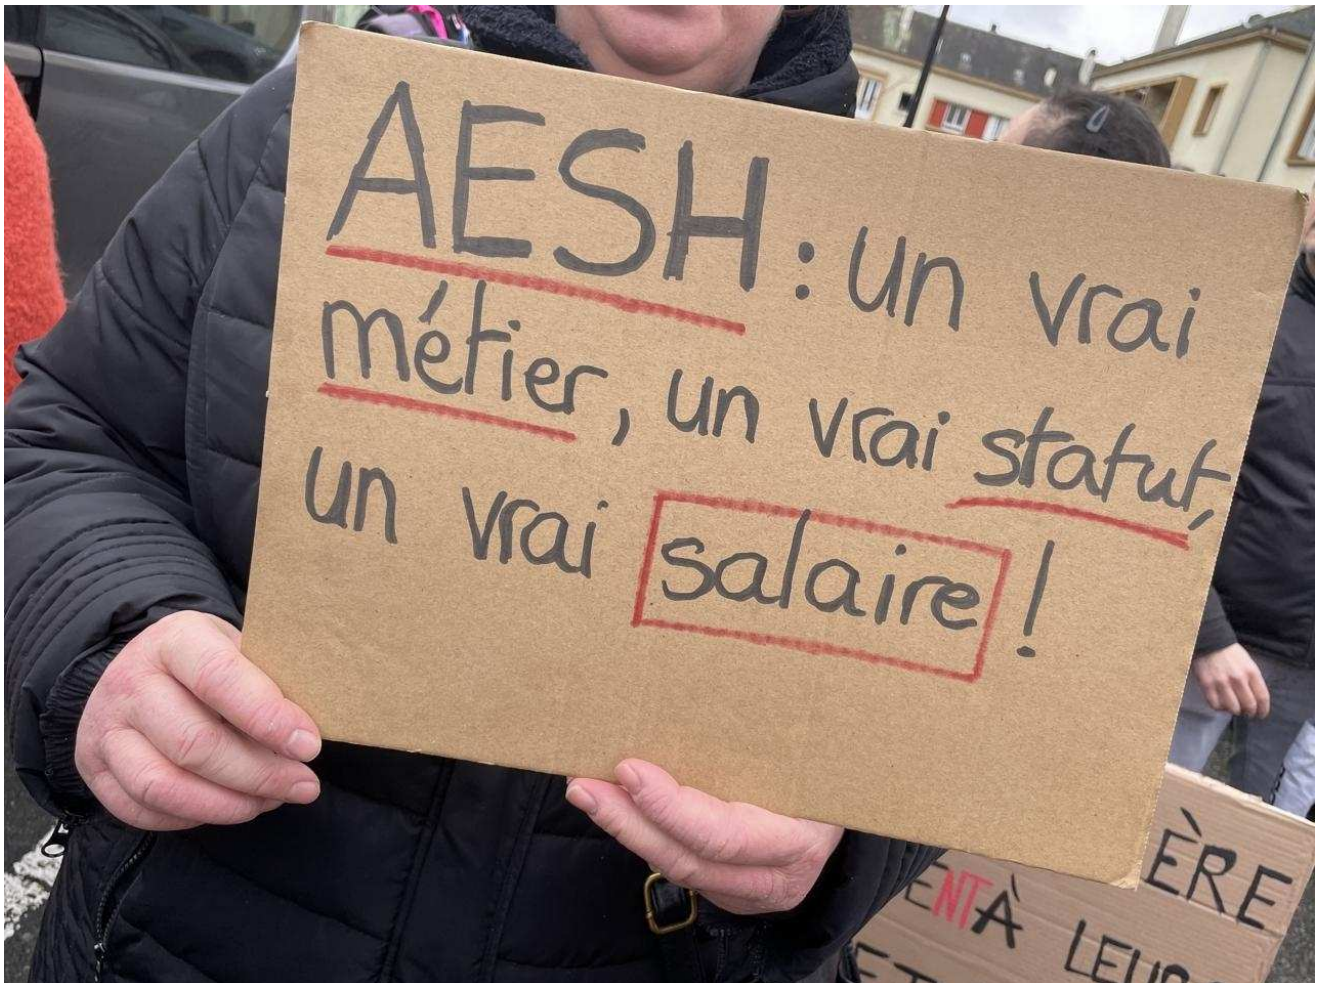 AESH : un vrai
métier, un vrai statut,
un vrai salaire !
ÈRE
ENT À LEUR